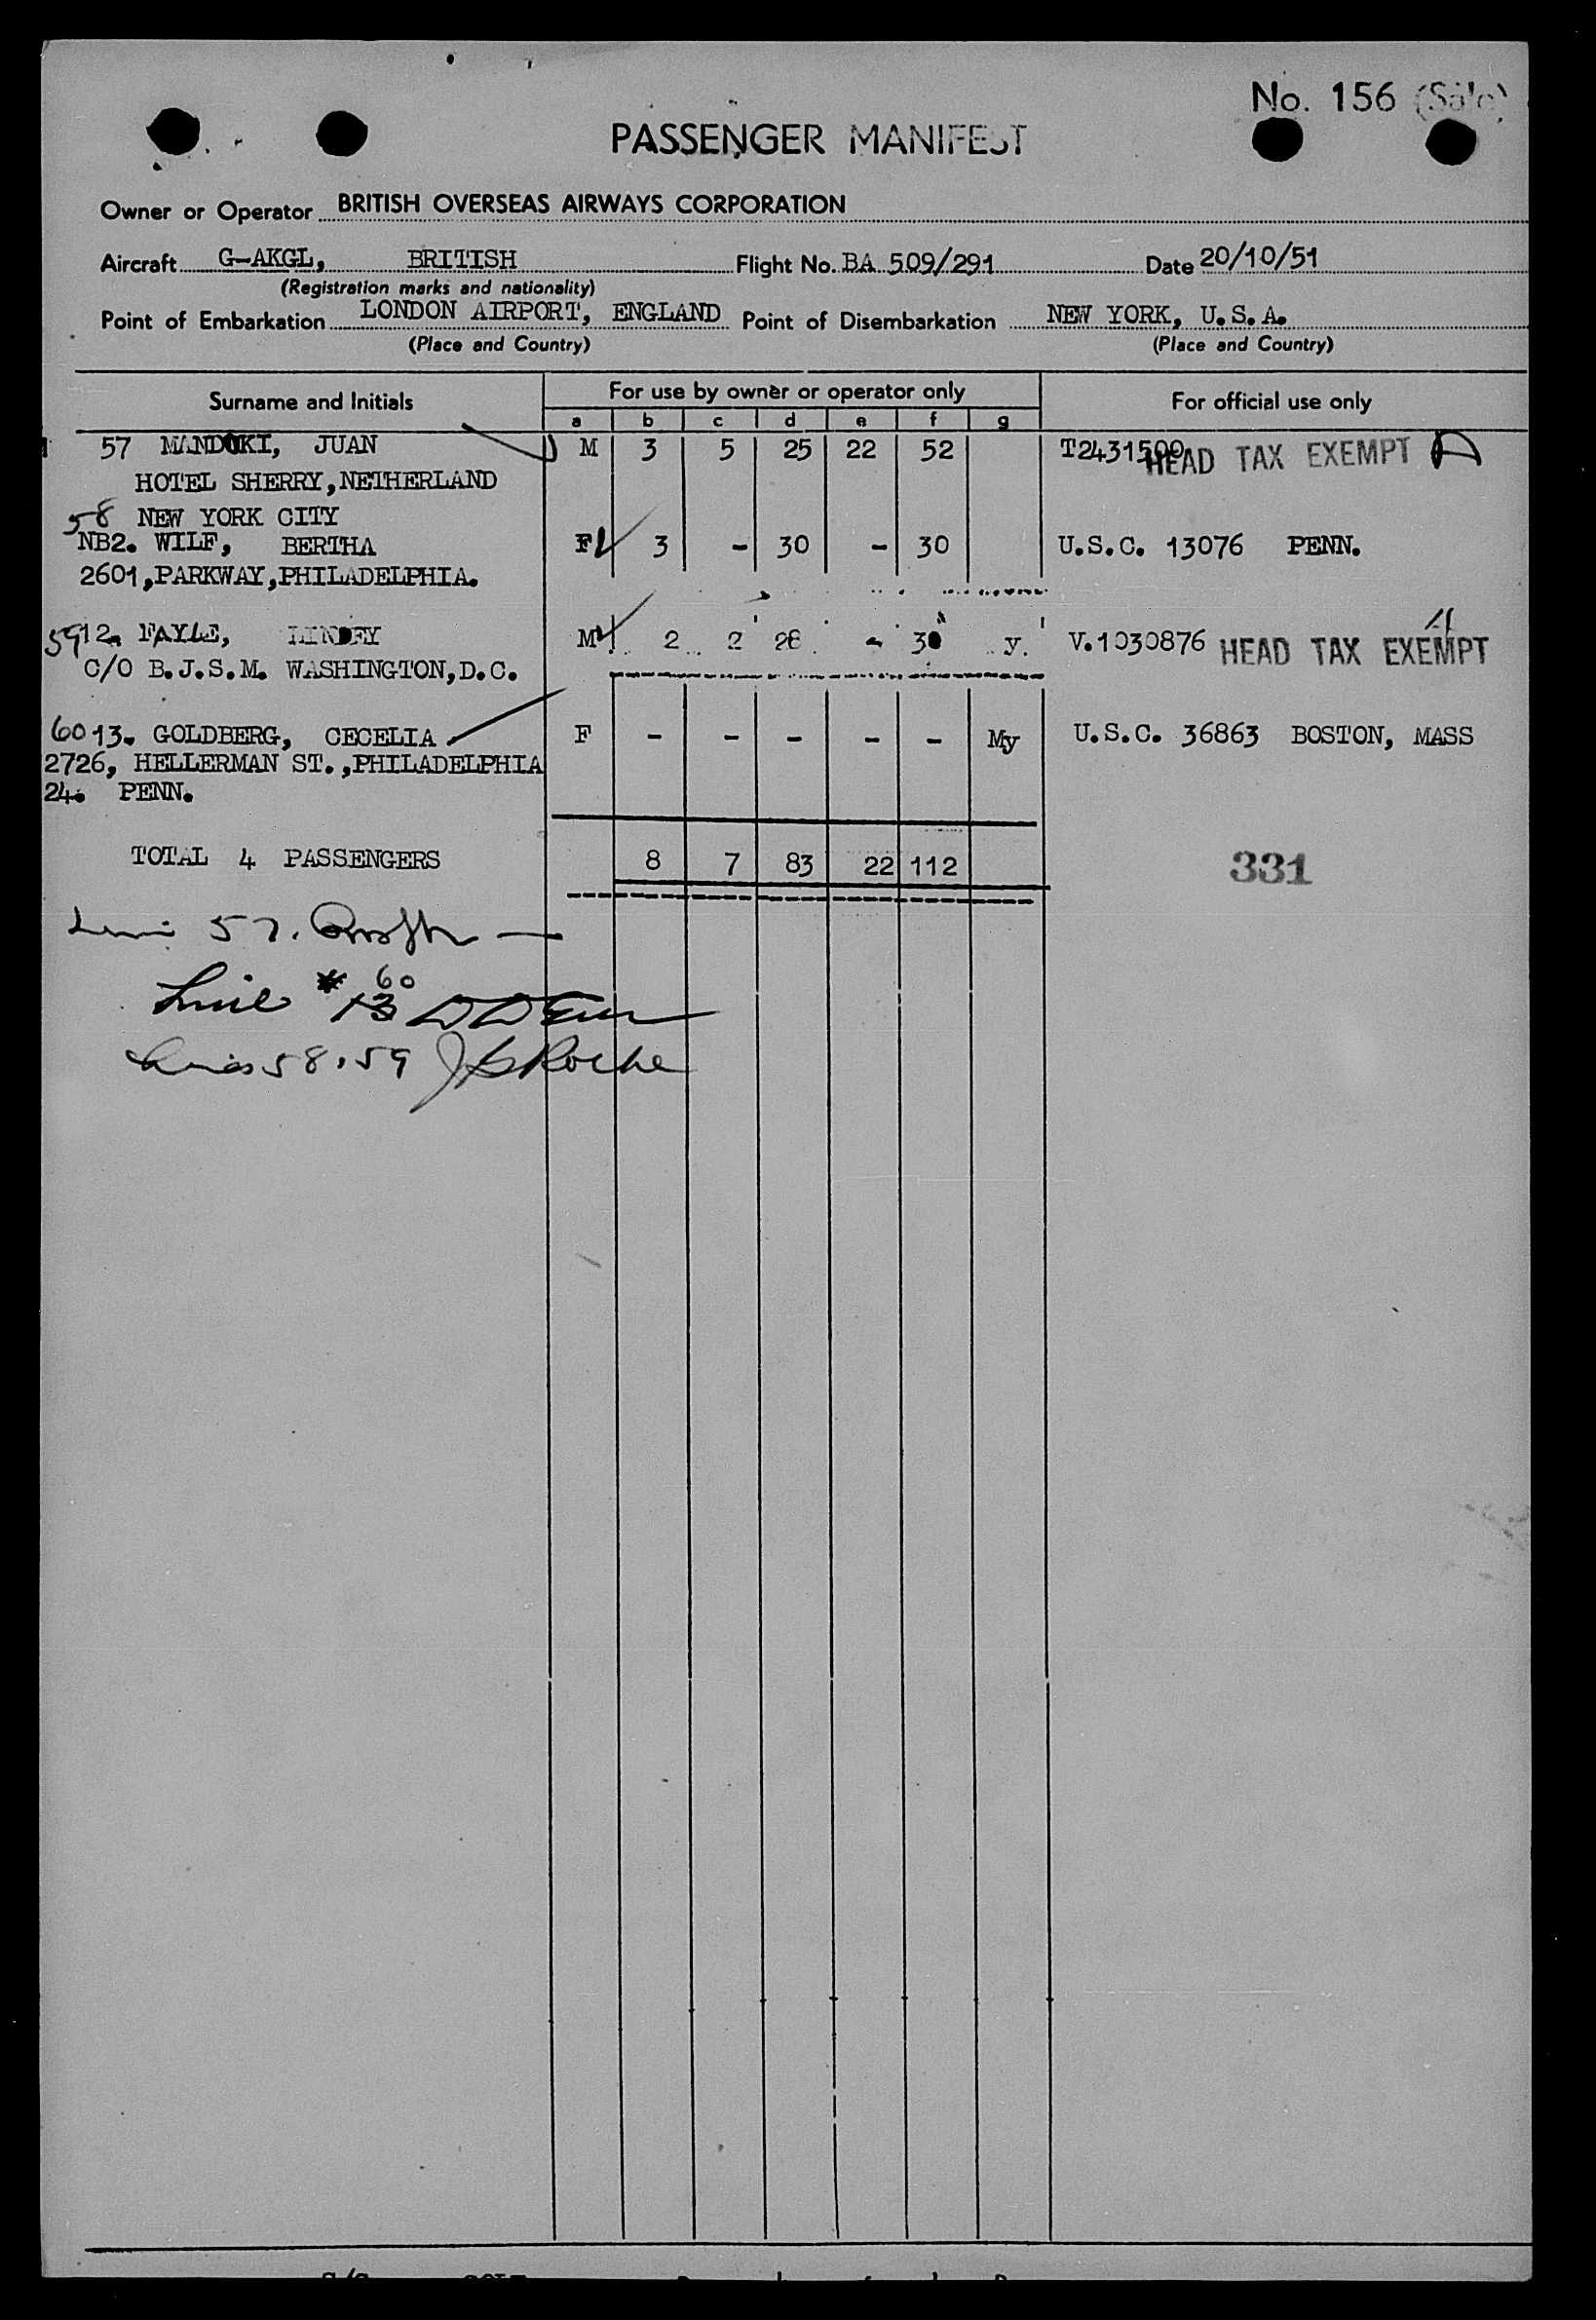 No. 156 (Sale)
PASSENGER MANIFEST
Owner or Operator BRITISH OVERSEAS AIRWAYS CORPORATION
Aircraft G-AKGL, BRITISH Flight No. BA 509/291 Date 20/10/51
(Registration marks and nationality)
Point of Embarkation LONDON AIRPORT, ENGLAND Point of Disembarkation NEW YORK, U.S.A.
(Place and Country) (Place and Country)
Surname and Initials For use by owner or operator only For official use only
a b c d e f g
57 MANDOKI, JUAN M 3 5 25 22 52 T2431500 HEAD TAX EXEMPT
HOTEL SHERRY,NETHERLAND
58 NEW YORK CITY
NB2. WILF, BERTHA F 3 - 30 - 30 U.S.C. 13076 PENN.
2601,PARKWAY,PHILADELPHIA.
59 12. FAYLE, LINDEY M 2 2 28 - 30 y. V.1030876 HEAD TAX EXEMPT
C/O B.J.S.M. WASHINGTON,D.C.
60 13. GOLDBERG, CECELIA F - - - - - My U.S.C. 36863 BOSTON, MASS
2726, HELLERMAN ST.,PHILADELPHIA
24. PENN.
TOTAL 4 PASSENGERS 8 7 83 22 112
331
57.
Line # 13 60
Lines 58, 59 Roche